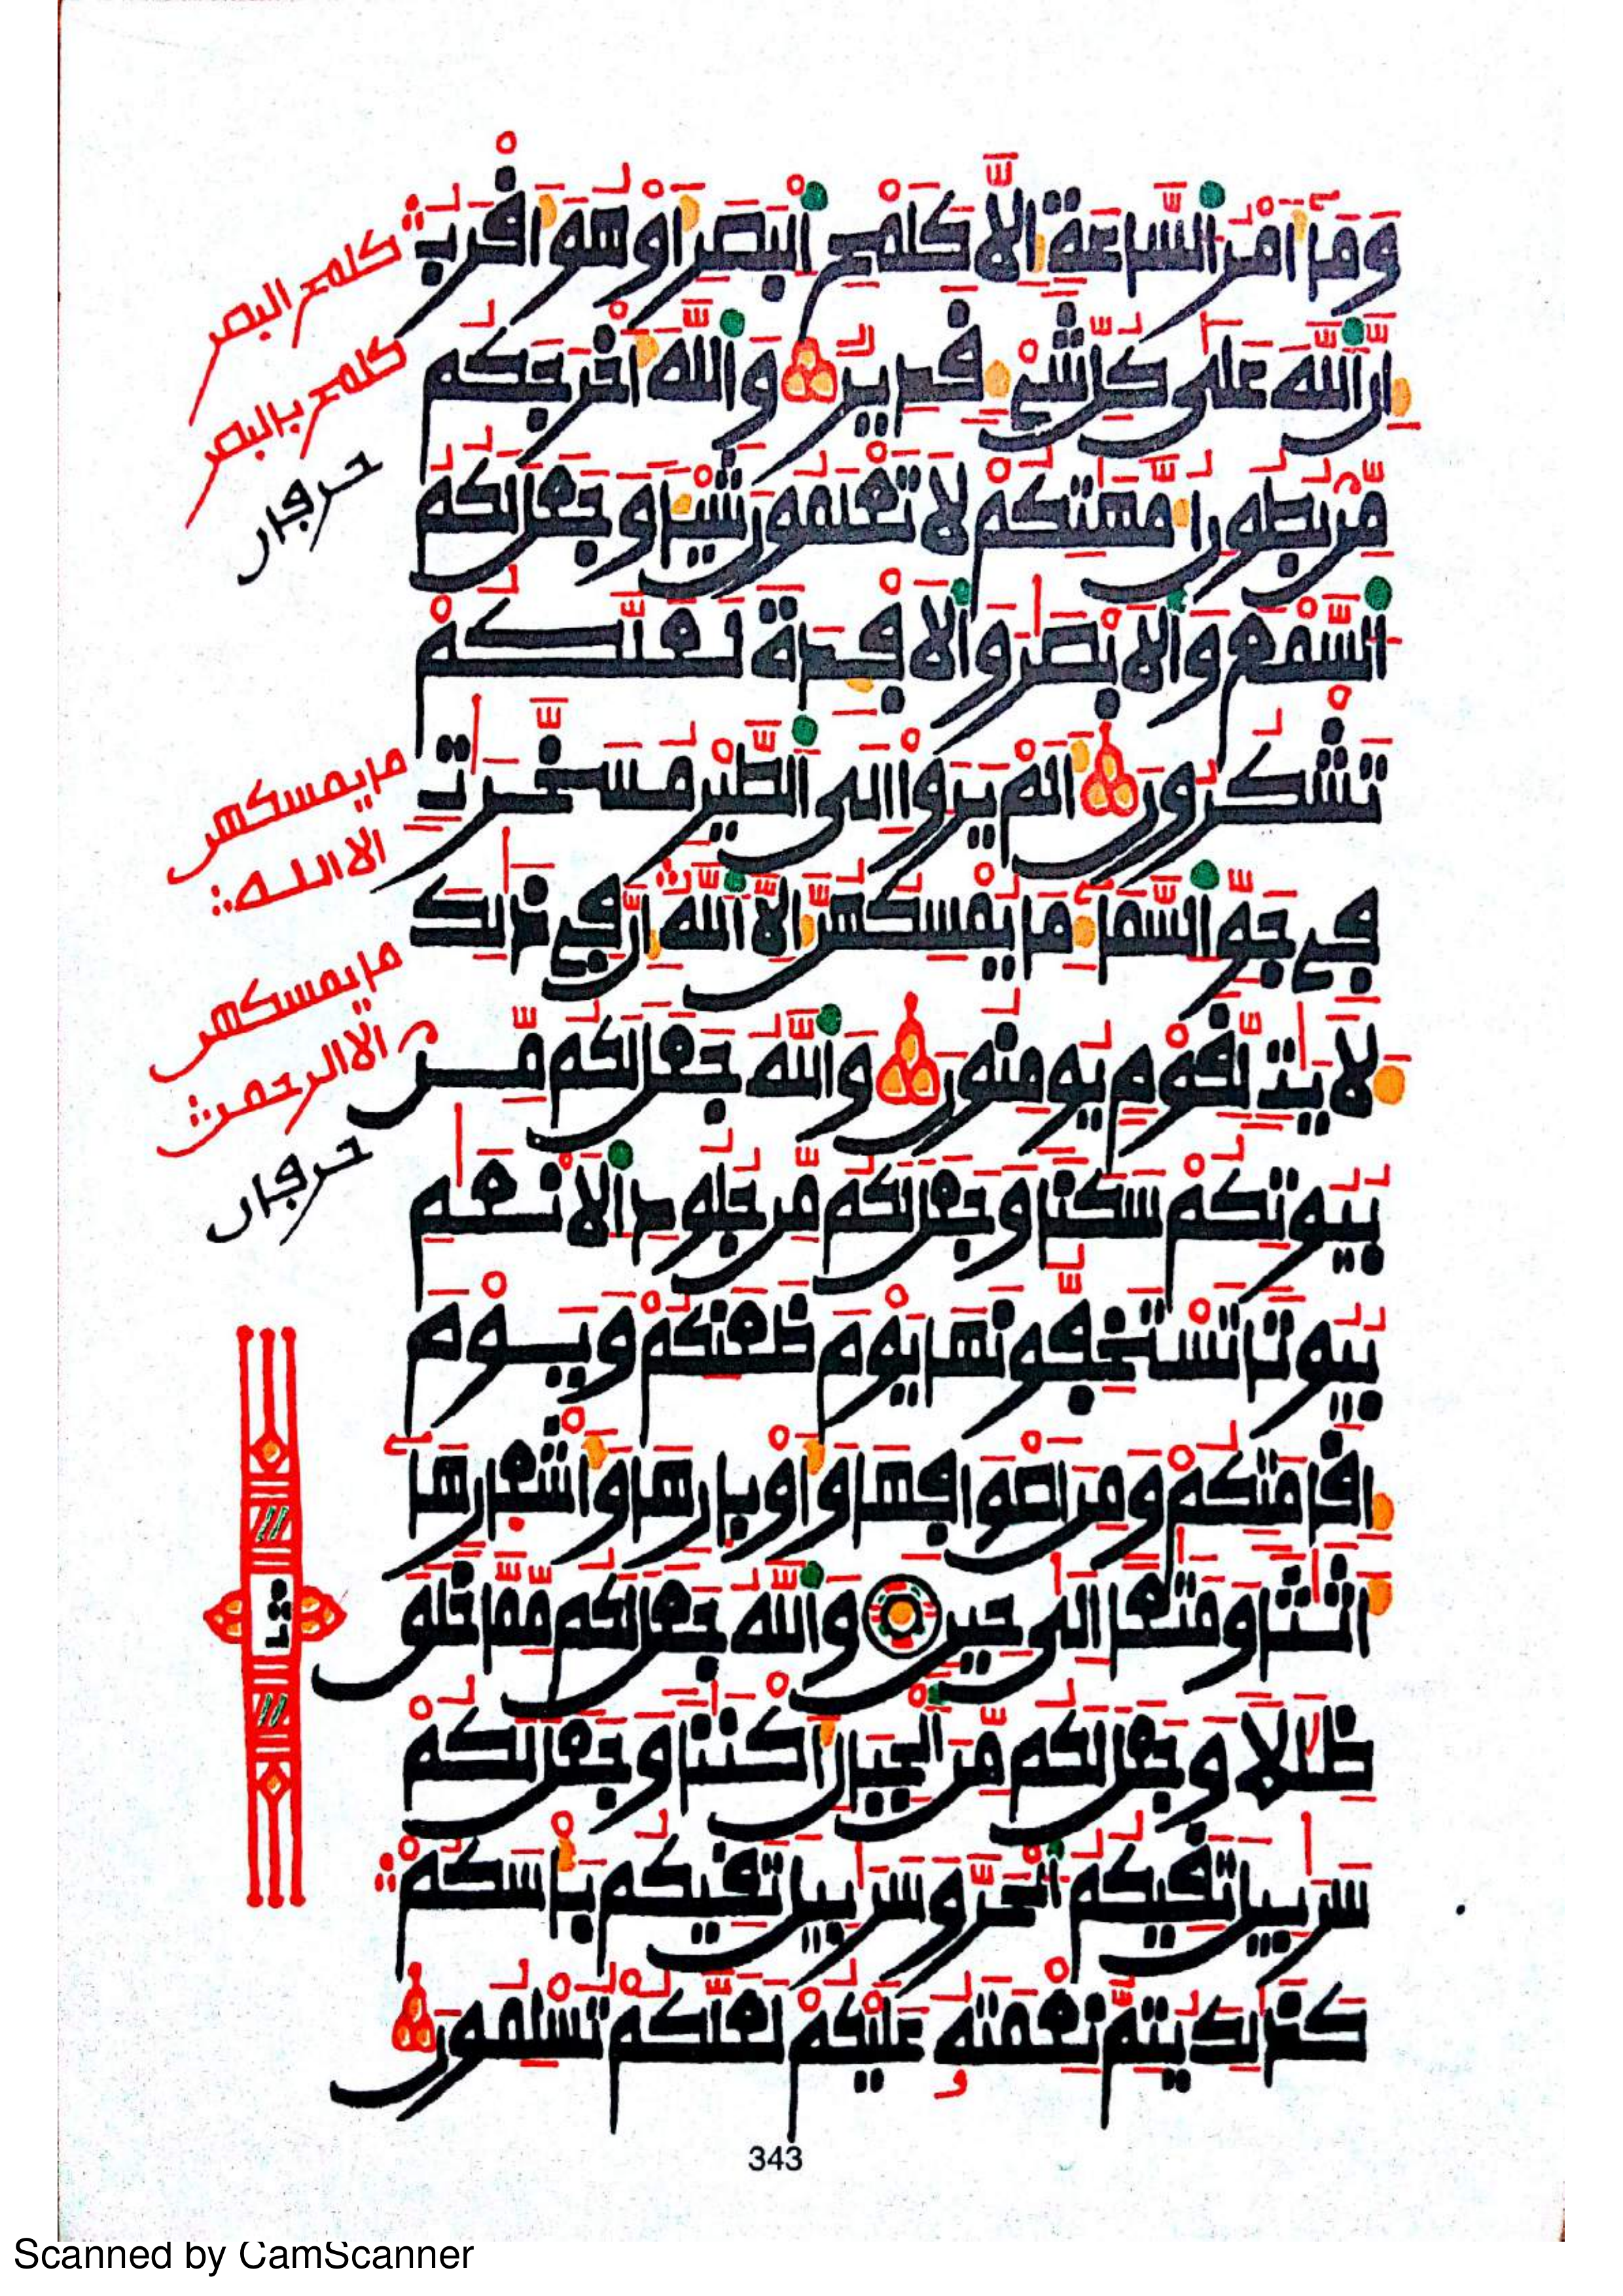 وَمَآ أَمْرُ السَّاعَةِ إِلَّا كَلَمْحِ الْبَصَرِ أَوْ هُوَ أَقْرَبُ
إِنَّ اللَّهَ عَلَىٰ كُلِّ شَيْءٍ قَدِيرٌ وَاللَّهُ أَخْرَجَكُم
مِّنۢ بُطُونِ أُمَّهَٰتِكُمْ لَا تَعْلَمُونَ شَيْئًا وَجَعَلَ لَكُمُ
السَّمْعَ وَالْأَبْصَٰرَ وَالْأَفْـِٕدَةَ لَعَلَّكُمْ
تَشْكُرُونَ أَلَمْ يَرَوْا إِلَى الطَّيْرِ مُسَخَّرَٰتٍ
فِي جَوِّ السَّمَآءِ مَا يُمْسِكُهُنَّ إِلَّا اللَّهُ إِنَّ فِي ذَٰلِكَ
لَأٓيَٰتٍ لِّقَوْمٍ يُومِنُونَ وَاللَّهُ جَعَلَ لَكُم مِّنۢ
بُيُوتِكُمْ سَكَنًا وَجَعَلَ لَكُم مِّن جُلُودِ الْأَنْعَٰمِ
بُيُوتًا تَسْتَخِفُّونَهَا يَوْمَ ظَعْنِكُمْ وَيَوْمَ
إِقَامَتِكُمْ وَمِنْ أَصْوَافِهَا وَأَوْبَارِهَا وَأَشْعَارِهَآ
أَثَٰثًا وَمَتَٰعًا إِلَىٰ حِينٍ وَاللَّهُ جَعَلَ لَكُم مِّمَّا خَلَقَ
ظِلَٰلًا وَجَعَلَ لَكُم مِّنَ الْجِبَالِ أَكْنَٰنًا وَجَعَلَ لَكُمْ
سَرَٰبِيلَ تَقِيكُمُ الْحَرَّ وَسَرَٰبِيلَ تَقِيكُم بَأْسَكُمْ
كَذَٰلِكَ يُتِمُّ نِعْمَتَهُۥ عَلَيْكُمْ لَعَلَّكُمْ تُسْلِمُونَ
كلمح البصر
كلمح بالبصر
حرفان
ما يمسكهن
الا الله
ما يمسكهن
الا الرحمن
حرفان
ثمن
343
Scanned by CamScanner